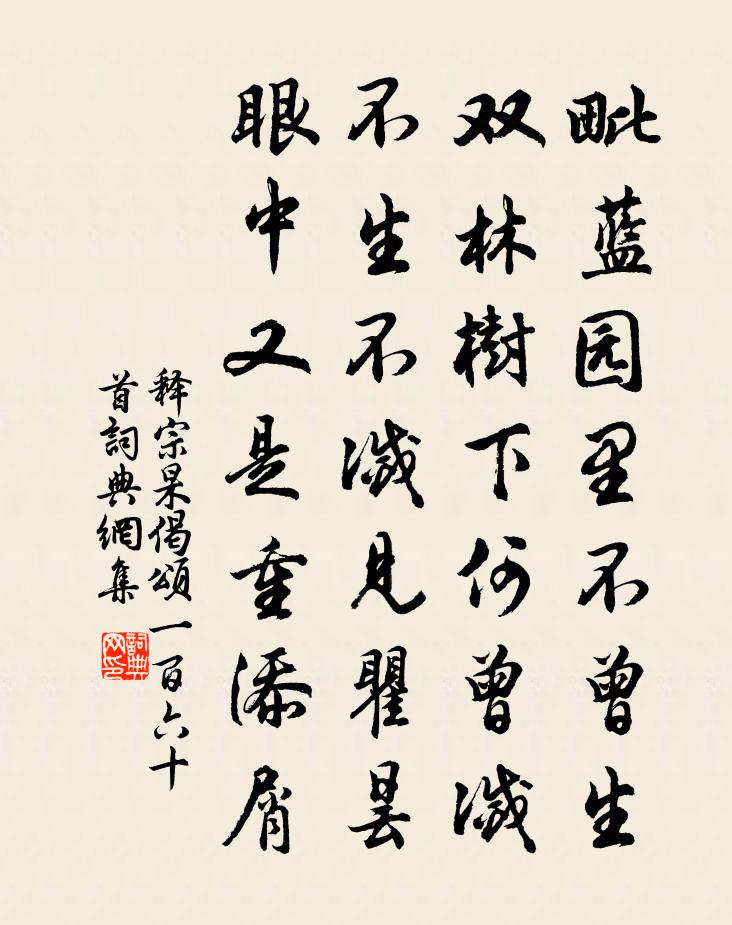 毗蓝园里不曾生
双林樹下何曾滅
不生不滅見瞿昙
眼中又是重添屑
释宗杲偈頌一百六十
首詞典網集
詞典网印